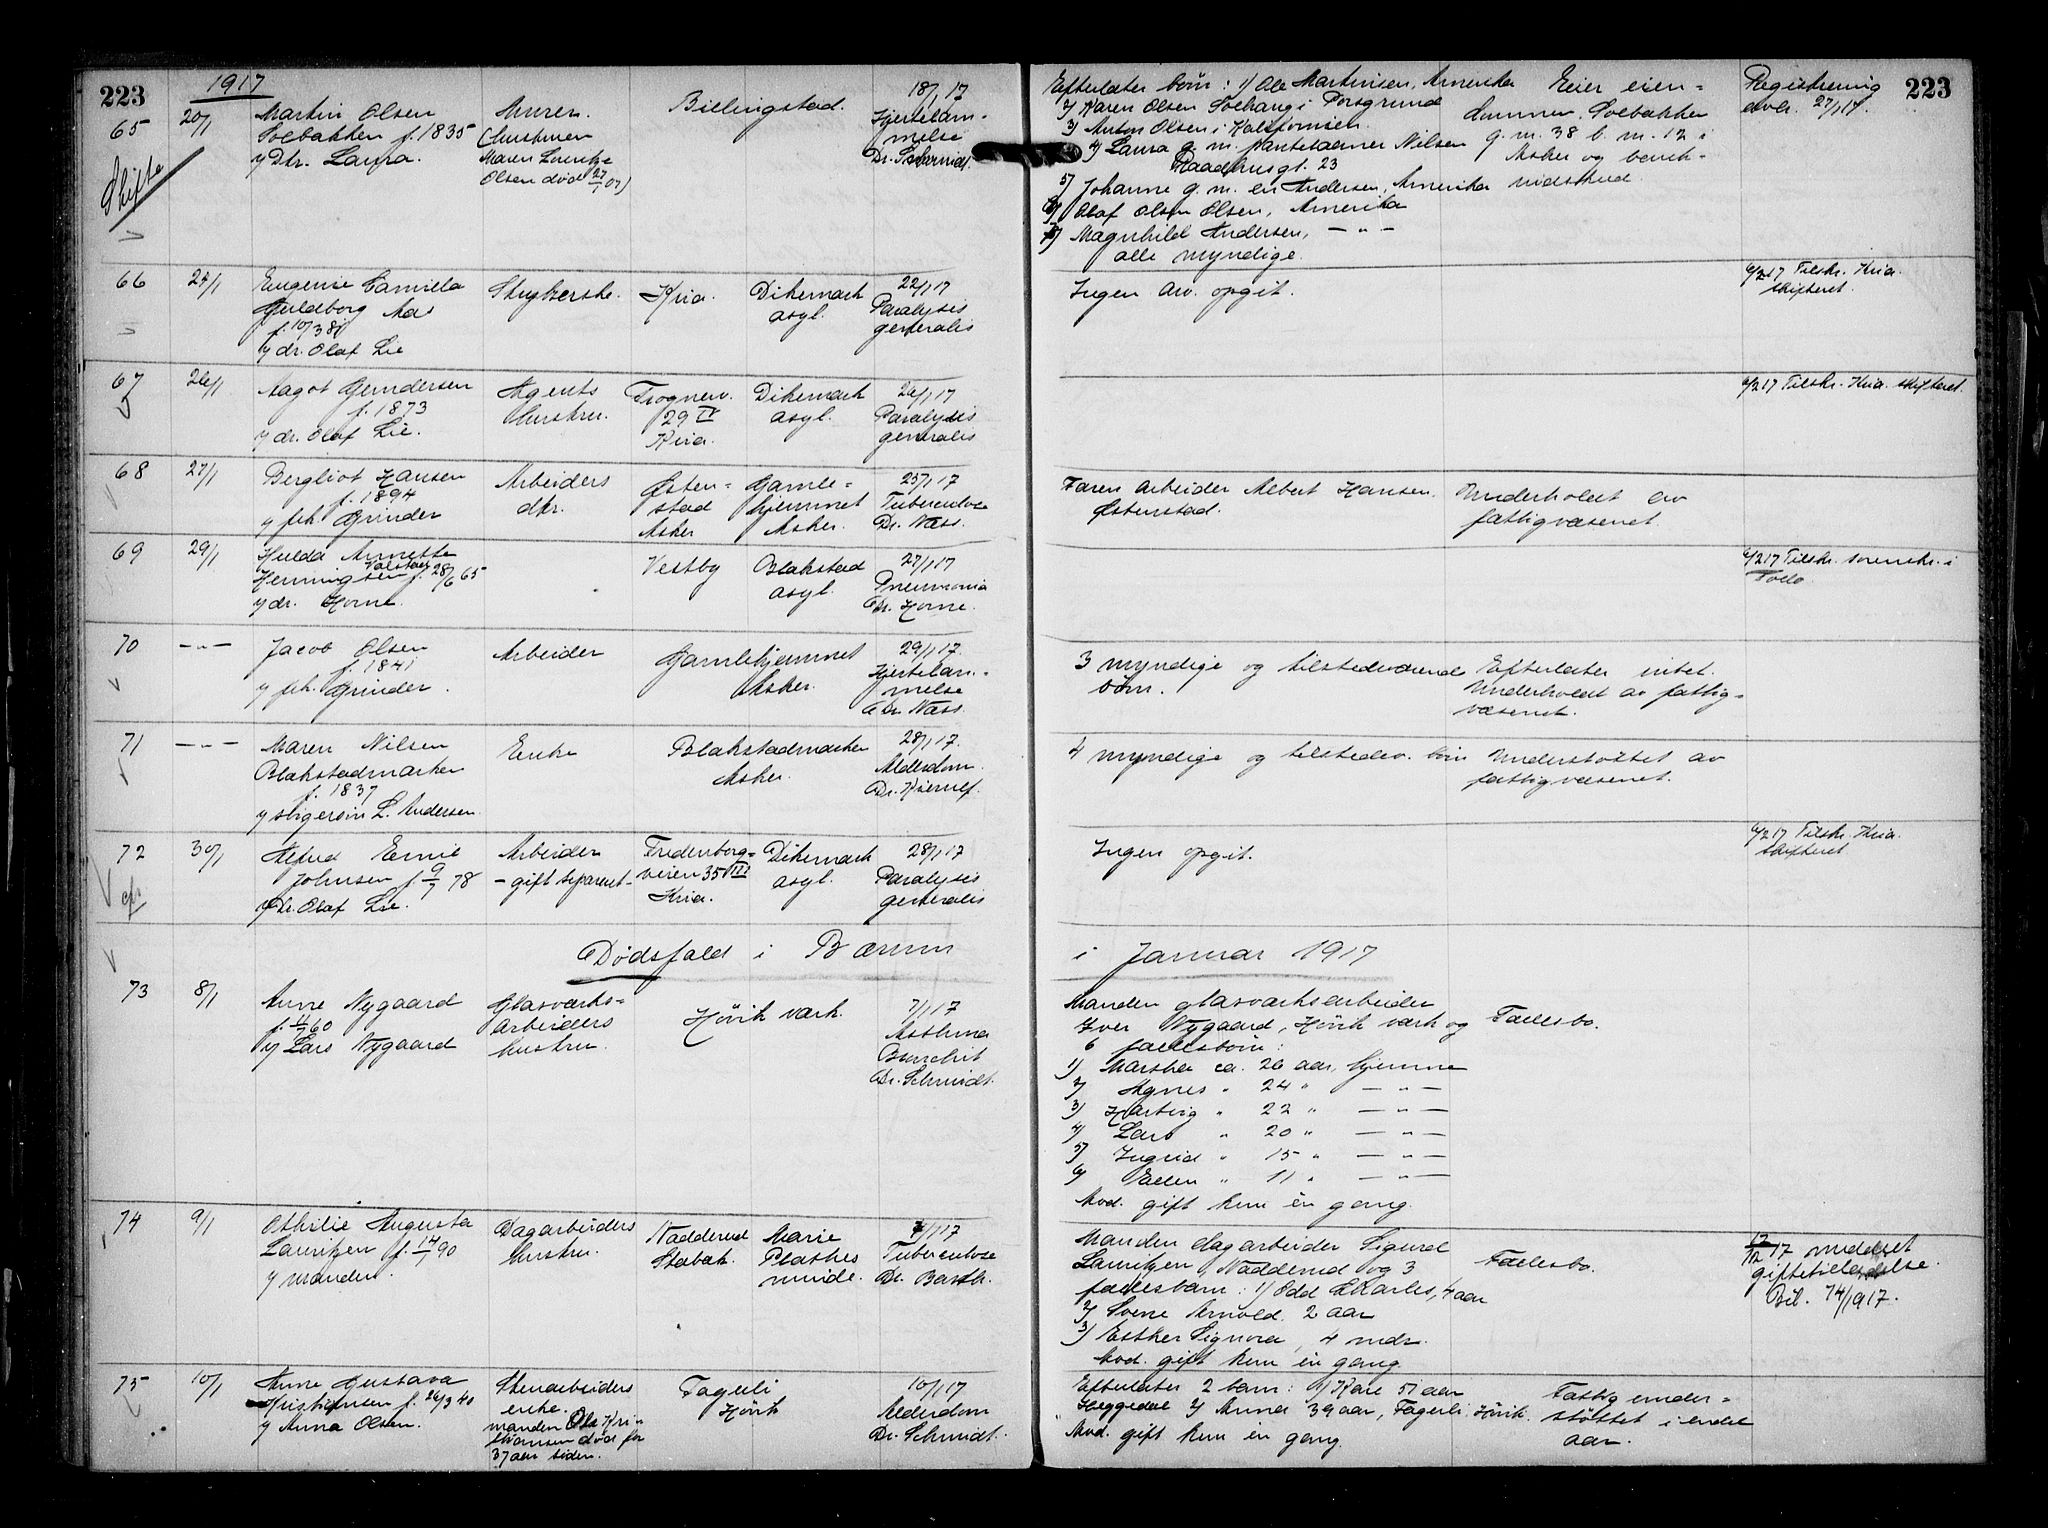 223
1917
65
20/1
Martin Olsen
Solbakken f. 1835
v/ Dtr. Laura.
Skifte
Murer.
(hustruen
Maren Lovritze
Olsen død 27/1 07)
Billingstad.
18/1 17
Hjertelam-
melse
Dr. Schmidt.
Efterlater børn: 1) Ole Martinsen, Amerika
2) Karen Olsen Solhaug i Porsgrund
3) Anton Olsen i Kalifornien.
4) Laura g. m. Nilsen
Raadhusgt. 23
5) Johanne g. m. en Andersen, Amerika
6) Olaf Olsen Olsen, Amerika
7) Magnhild Andersen, — " —
alle myndige.
Eier eien-
dommen Solbakken
g. nr. 38 b. nr. 12 i
Asker og benet-
midskud.
Registrering
avh. 27/1 17.
223
66
24/1
Eugenie Camilla
Guldborg Aas
f. 10/3 81
v/ dr. Olaf Lie
Strykerske.
Kria.
Dikemark
asyl.
22/1 17
Paralysis
generalis
Ingen arv. opgit.
6/2 17 Tilskr. Kria.
skifteret.
67
26/1
Aagot Gundersen
f. 1873
v/ dr. Olaf Lie.
Agents
hustru.
Frognerv.
29 IV
Kria.
Dikemark
asyl.
24/1 17
Paralysis
generalis
6/2 17 Tilskr. Kria. skifteret.
68
27/1
Bergliot Hansen
f. 1894
v/ frk. Grinder
Arbeiders
dtr.
Østen-
stad
Asker
Gamle-
hjemmet
Asker.
25/1 17
Tuberculose
Dr. Næss.
Faren arbeider Albert Hansen.
Østenstad.
Underholdt av
fattigvæsenet.
69
29/1
Hulda Annette
Kolstad
Henningsen f. 28/6 65
v/ dr. Horne.
Vestby
Blakstad
asyl.
27/1 17
Pneumonia
Dr. Horne.
6/2 17 Tilskr. sorenskr. i
Follo.
70
— " —
Jacob Olsen
f. 1841
v/ frk. Grinder.
Arbeider
Gamlehjemmet
Asker.
29/1 17.
Hjertelam-
melse
Dr. Næss.
3 myndige og tilstedeværende
børn.
Efterlater intet.
Underholdt av fattig-
væsenet.
71
— " —
Maren Nilsen
Blakstadmarken
f. 1837
v/ svigersøn L. Andersen.
Enke
Blakstadmarken
Asker.
28/1 17.
Alderdom.
Dr. Kierulf.
4 myndige og tilstedev. børn
Understøttet av
fattigvæsenet.
72
30/1
Alfred Emil
Johnsen f. 9/7 78
v/ Dr. Olaf Lie.
Arbeider
– gift separert –
Fredenborg-
veien 35 III
Kria.
Dikemark
asyl.
28/1 17
Paralysis
generalis
Ingen opgit.
6/2 17 Tilskr. Kria.
skifteret
Dødsfald i Bærum
i Januar 1917
73
8/1
Anne Nygaard
f. 1/7 60
v/ Lars Nygaard
Glasværks-
arbeiders
hustru.
Høvik værk.
7/1 17
Asthma
Bronchit
Dr. Schmidt.
Manden glasværksarbeider
Iver Nygaard, Høvik værk og
6 fællesbørn:
1) Marthea ca. 26 aar, hjemme
2) Agnes " 24 " — " —
3) Hartvig " 22 " — " —
4) Lars " 20 " — " —
5) Ingrid " 15 " — " —
6) Ellen " 11 " — " —
Avd. gift kun én gang.
Fællesbo.
74
9/1
Othilie Augusta
Lauritzen f. 14/1 90
v/ manden.
Dagarbeiders
hustru.
Nadderud
Stabæk.
Marie
Plathes
minde.
4/1 17
Tuberculose
Dr. Barth.
Manden dagarbeider Sigurd
Lauritzen, Nadderud og 3
fællesbarn: 1) Odd Charles, 4 aar
2) Svene Arnold. 2 aar
3) Esther Signora, 4 mdr.
Avd. gift kun én gang.
Fællesbo.
12/12 17 meddelt
giftetilladelse.
Bil. 74/1917.
75
10/1
Anne Gustava
Kristiansen f. 26/3 40
v/ Anna Olsen.
Stenarbeiders
enke.
manden Ole Kri
stiansen død for
37 aar siden.
Fagerli
Høvik
10/1 17
Alderdom
Dr. Schmidt.
Efterlater 2 barn: 1) Kare 51 aar
Heggedal 2) Anna 39 aar, Fagerli, Høvik.
Avd. gift kun én gang.
Fattig under-
støttet i endel
aar.